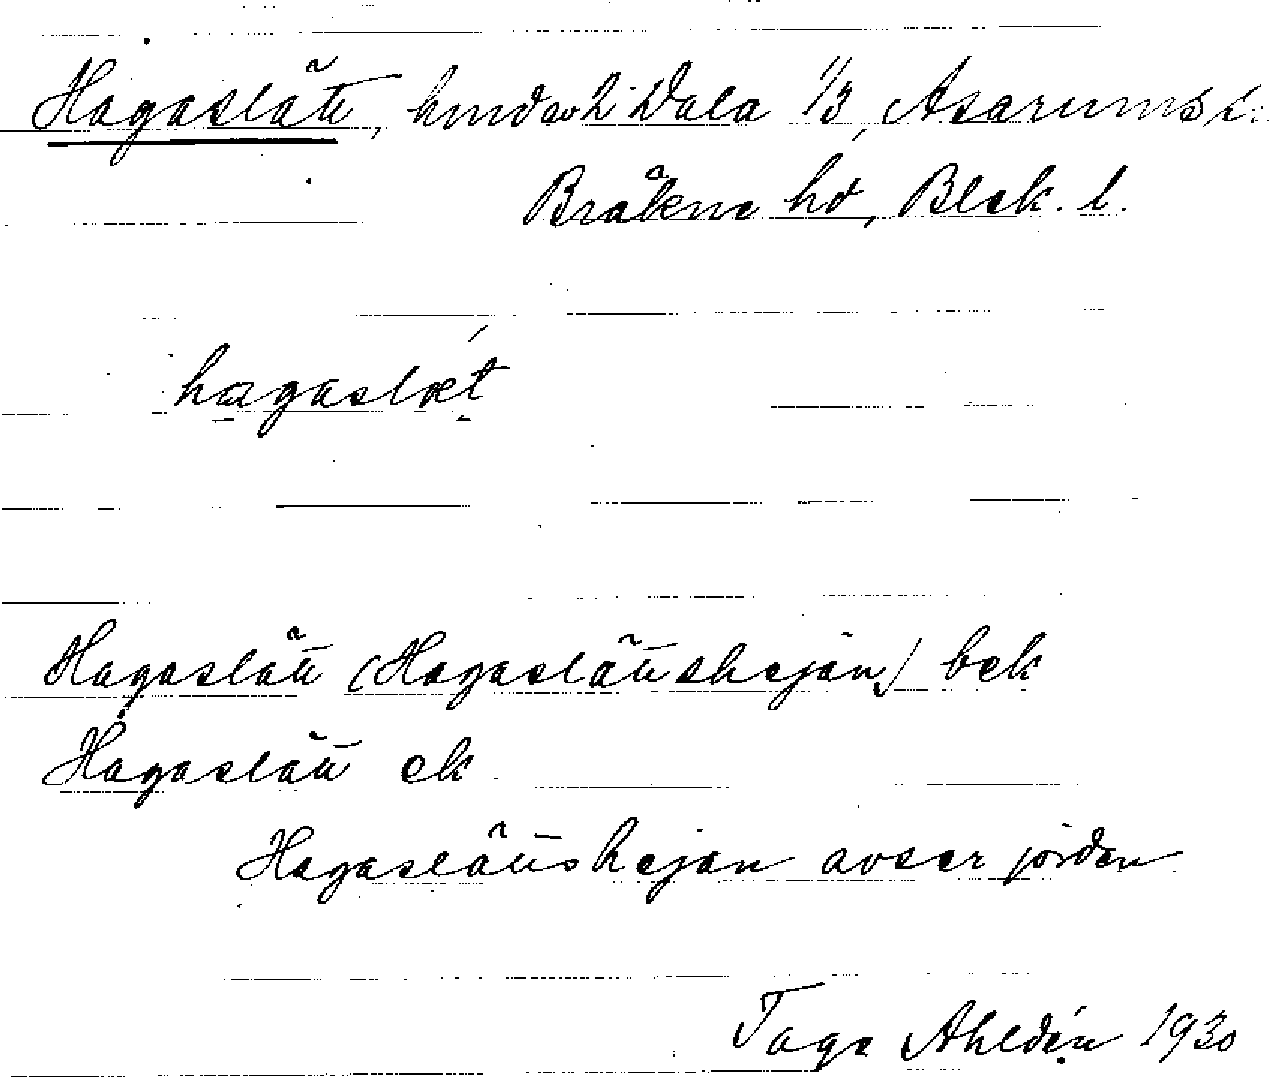 Hagaslätt, hmdsvh Dala 1/3, Asarums s:
Bräkne hd, Blek. l.
hagaslæt
Hagaslätt (Hagaslättshejan) bek
Hagaslätt ek
Hagaslättshejan avser jorden
Tage Ahldén 1930